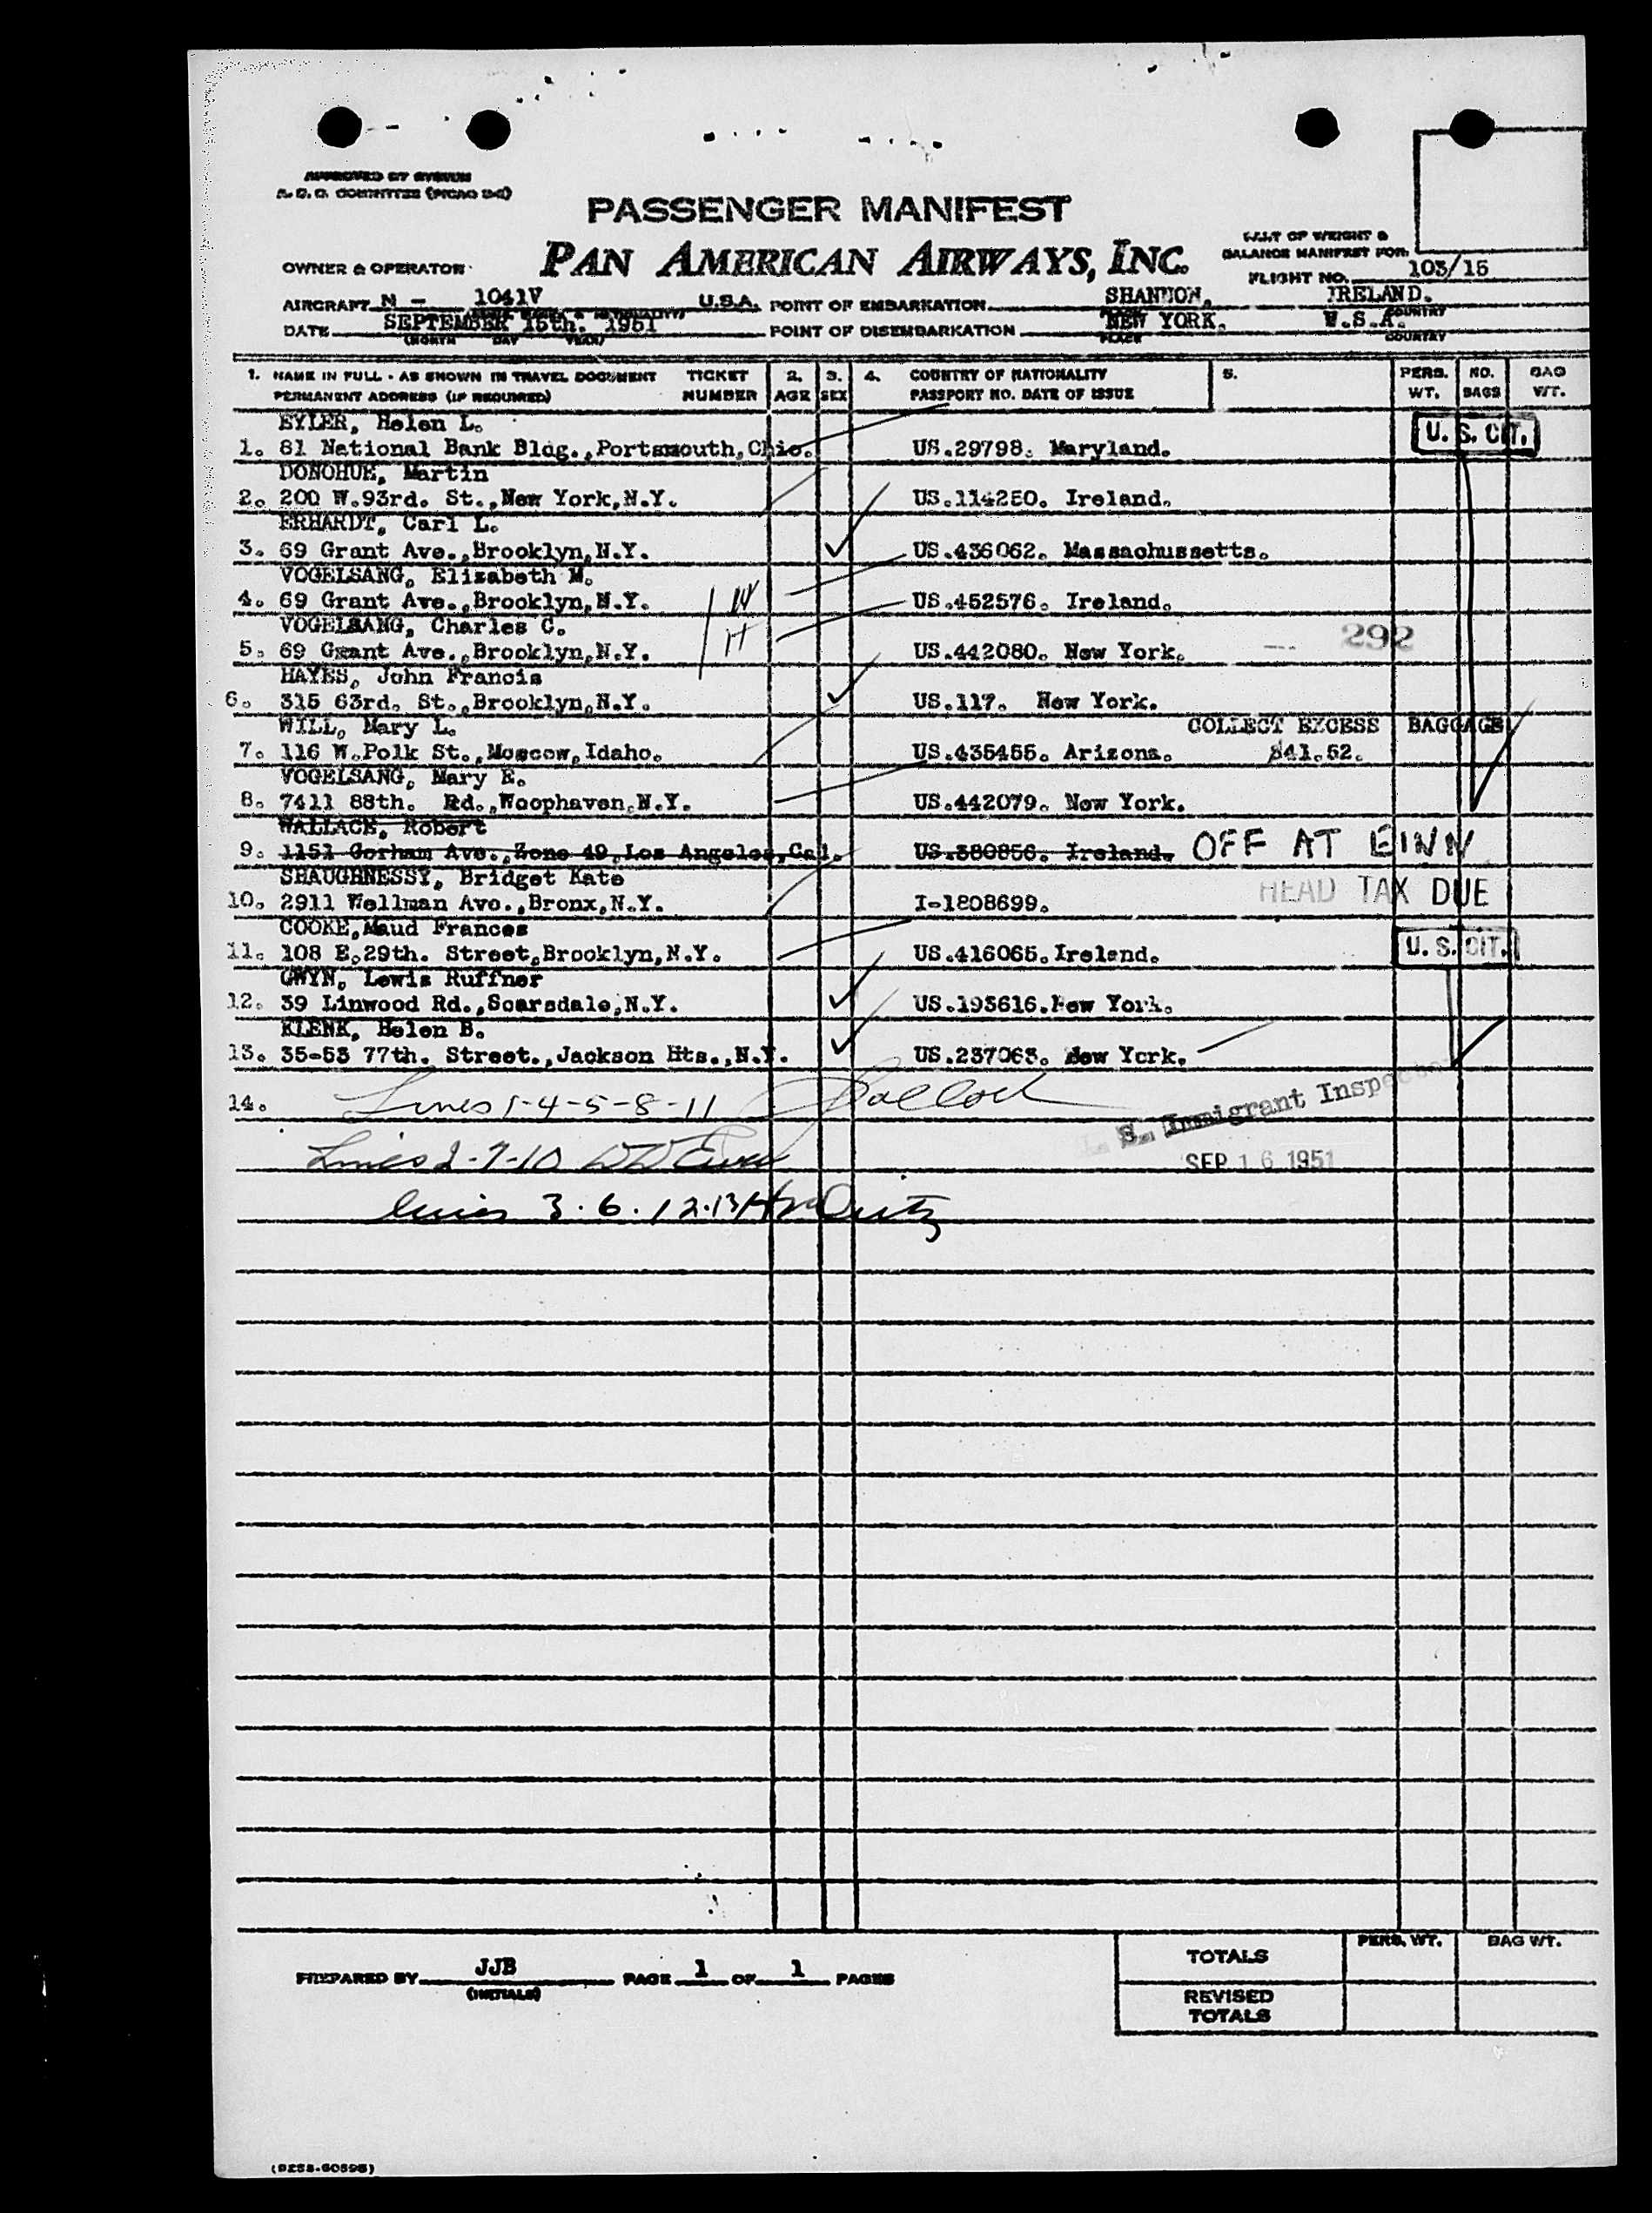 APPROVED BY SYSTEM
A. C. C. COMMITTEE
PASSENGER MANIFEST
OWNER & OPERATOR PAN AMERICAN AIRWAYS, INC.
PART OF WEIGHT &
BALANCE MANIFEST FOR:
FLIGHT NO. 103/15
AIRCRAFT N - 1041V U.S.A. POINT OF EMBARKATION SHANNON, IRELAND.
DATE SEPTEMBER 15th. 1951 POINT OF DISEMBARKATION NEW YORK. U.S.A.
(MONTH DAY YEAR) PLACE COUNTRY
1. NAME IN FULL - AS SHOWN IN TRAVEL DOCUMENT TICKET 2. 3. 4. COUNTRY OF NATIONALITY 5. PERS. NO. BAG
PERMANENT ADDRESS (IF REQUIRED) NUMBER AGE SEX PASSPORT NO. DATE OF ISSUE WT. BAGS WT.
EYLER, Helen L.
1. 81 National Bank Bldg.,Portsmouth,Ohio. US.29798. Maryland. U. S. CIT.
DONOHUE, Martin
2. 200 W.93rd. St.,New York,N.Y. US.114250. Ireland.
ERHARDT, Carl L.
3. 69 Grant Ave.,Brooklyn,N.Y. US.436062. Massachussetts.
VOGELSANG, Elizabeth M.
4. 69 Grant Ave.,Brooklyn,N.Y. US.452576. Ireland.
VOGELSANG, Charles C.
5. 69 Grant Ave.,Brooklyn,N.Y. US.442080. New York. 292
HAYES, John Francis
6. 315 63rd. St.,Brooklyn,N.Y. US.117. New York.
WILL, Mary L. COLLECT EXCESS BAGGAGE
7. 116 W.Polk St.,Moscow,Idaho. US.435455. Arizona. $41.52.
VOGELSANG, Mary E.
8. 7411 88th. Rd.,Woophaven,N.Y. US.442079. New York.
WALLACE, Robert
9. 1151 Gorham Ave.,Zone 49,Los Angeles,Cal. US.380856. Ireland. OFF AT EINN
SHAUGHNESSY, Bridget Kate
10. 2911 Wellman Ave.,Bronx,N.Y. I-1808699. HEAD TAX DUE
COOKE,Maud Frances
11. 108 E.29th. Street,Brooklyn,N.Y. US.416065.Ireland. U. S. CIT.
GWYN, Lewis Ruffner
12. 39 Linwood Rd.,Scarsdale,N.Y. US.193616.New York.
KLENK, Helen B.
13. 35-53 77th. Street.,Jackson Hts.,N.Y. US.237063. New York.
14. Lines 1-4-5-8-11
S. Immigrant Inspector
Lines 2-7-10
SEP 16 1951
Lines 3.6.12.13
PREPARED BY JJB PAGE 1 OF 1 PAGES
(INITIALS)
PERS. WT. BAG WT.
TOTALS
REVISED
TOTALS